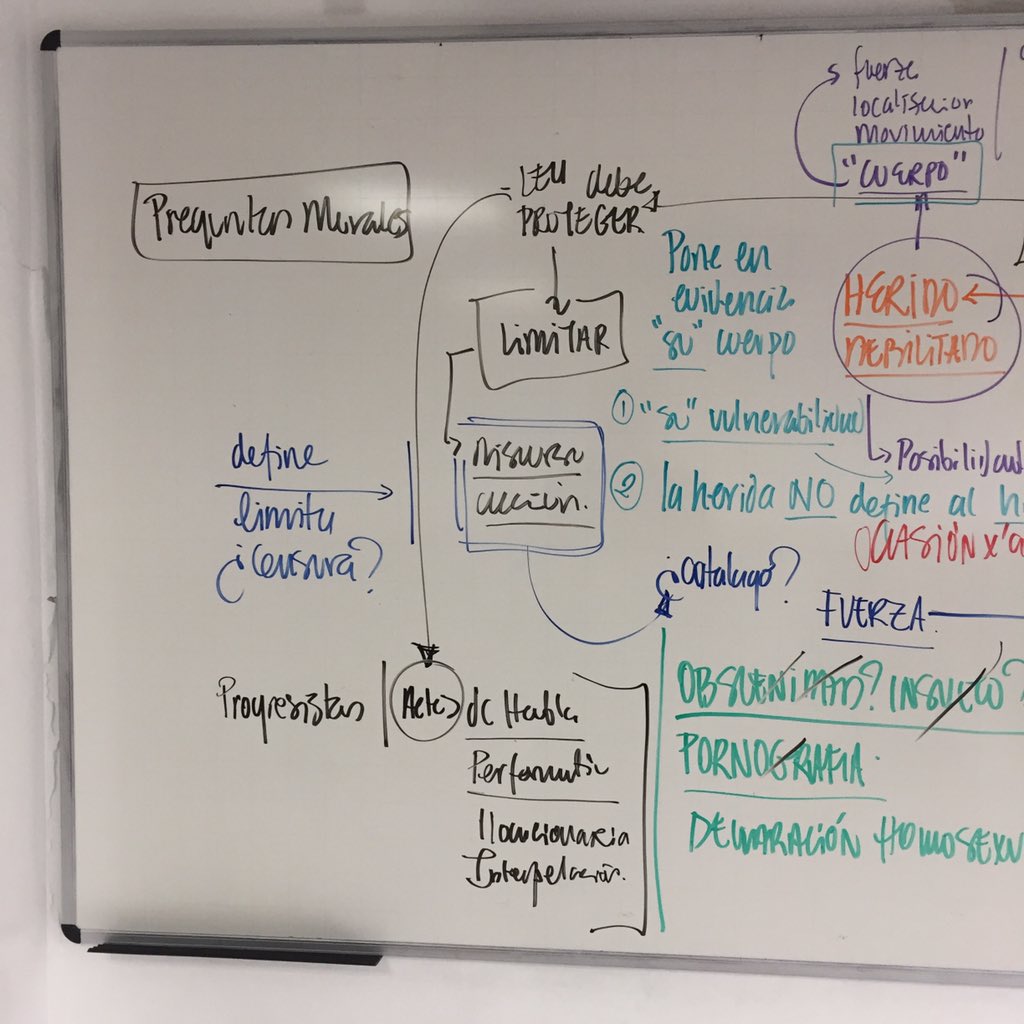 fuerza
localisacion
movimiento
"CUERPO"
Preguntas Morales
LEY debe
PROTEGER
Pone en
evidencia
"su" cuerpo
HERIDO
DEBILITADO
LIMITAR
① "su" vulnerabilidad
Posibilidad
Discurso
acción.
② la herida NO define al
OCASIÓN x'
define
limita
¿Censura?
¿Catalogo?
FUERZA
Progresistas
Actos de Habla
Performativ
Ilocucionaria
Interpelación.
OBSCENIDAD? INSULTO?
PORNOGRAFIA.
DECLARACIÓN HOMOSEXU